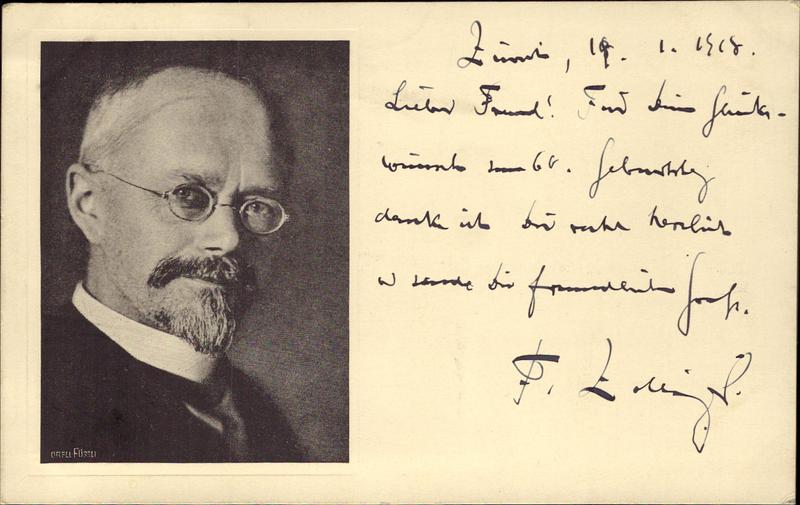 Zürich, 19. 1. 1918.
Lieber Freund! Für deine Glück-
wünsche zum 60. Geburtstag
danke ich Dir recht herzlich
u sende Dir freundlichen Gruß.
F. Zollinger.
ORELL FÜSSLI